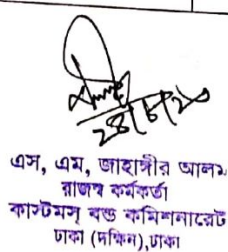 ২৪/৮/২০
এস, এম, জাহাঙ্গীর আলম
রাজস্ব কর্মকর্তা
কাস্টমস্ বন্ড কমিশনারেট
ঢাকা (দক্ষিন),ঢাকা